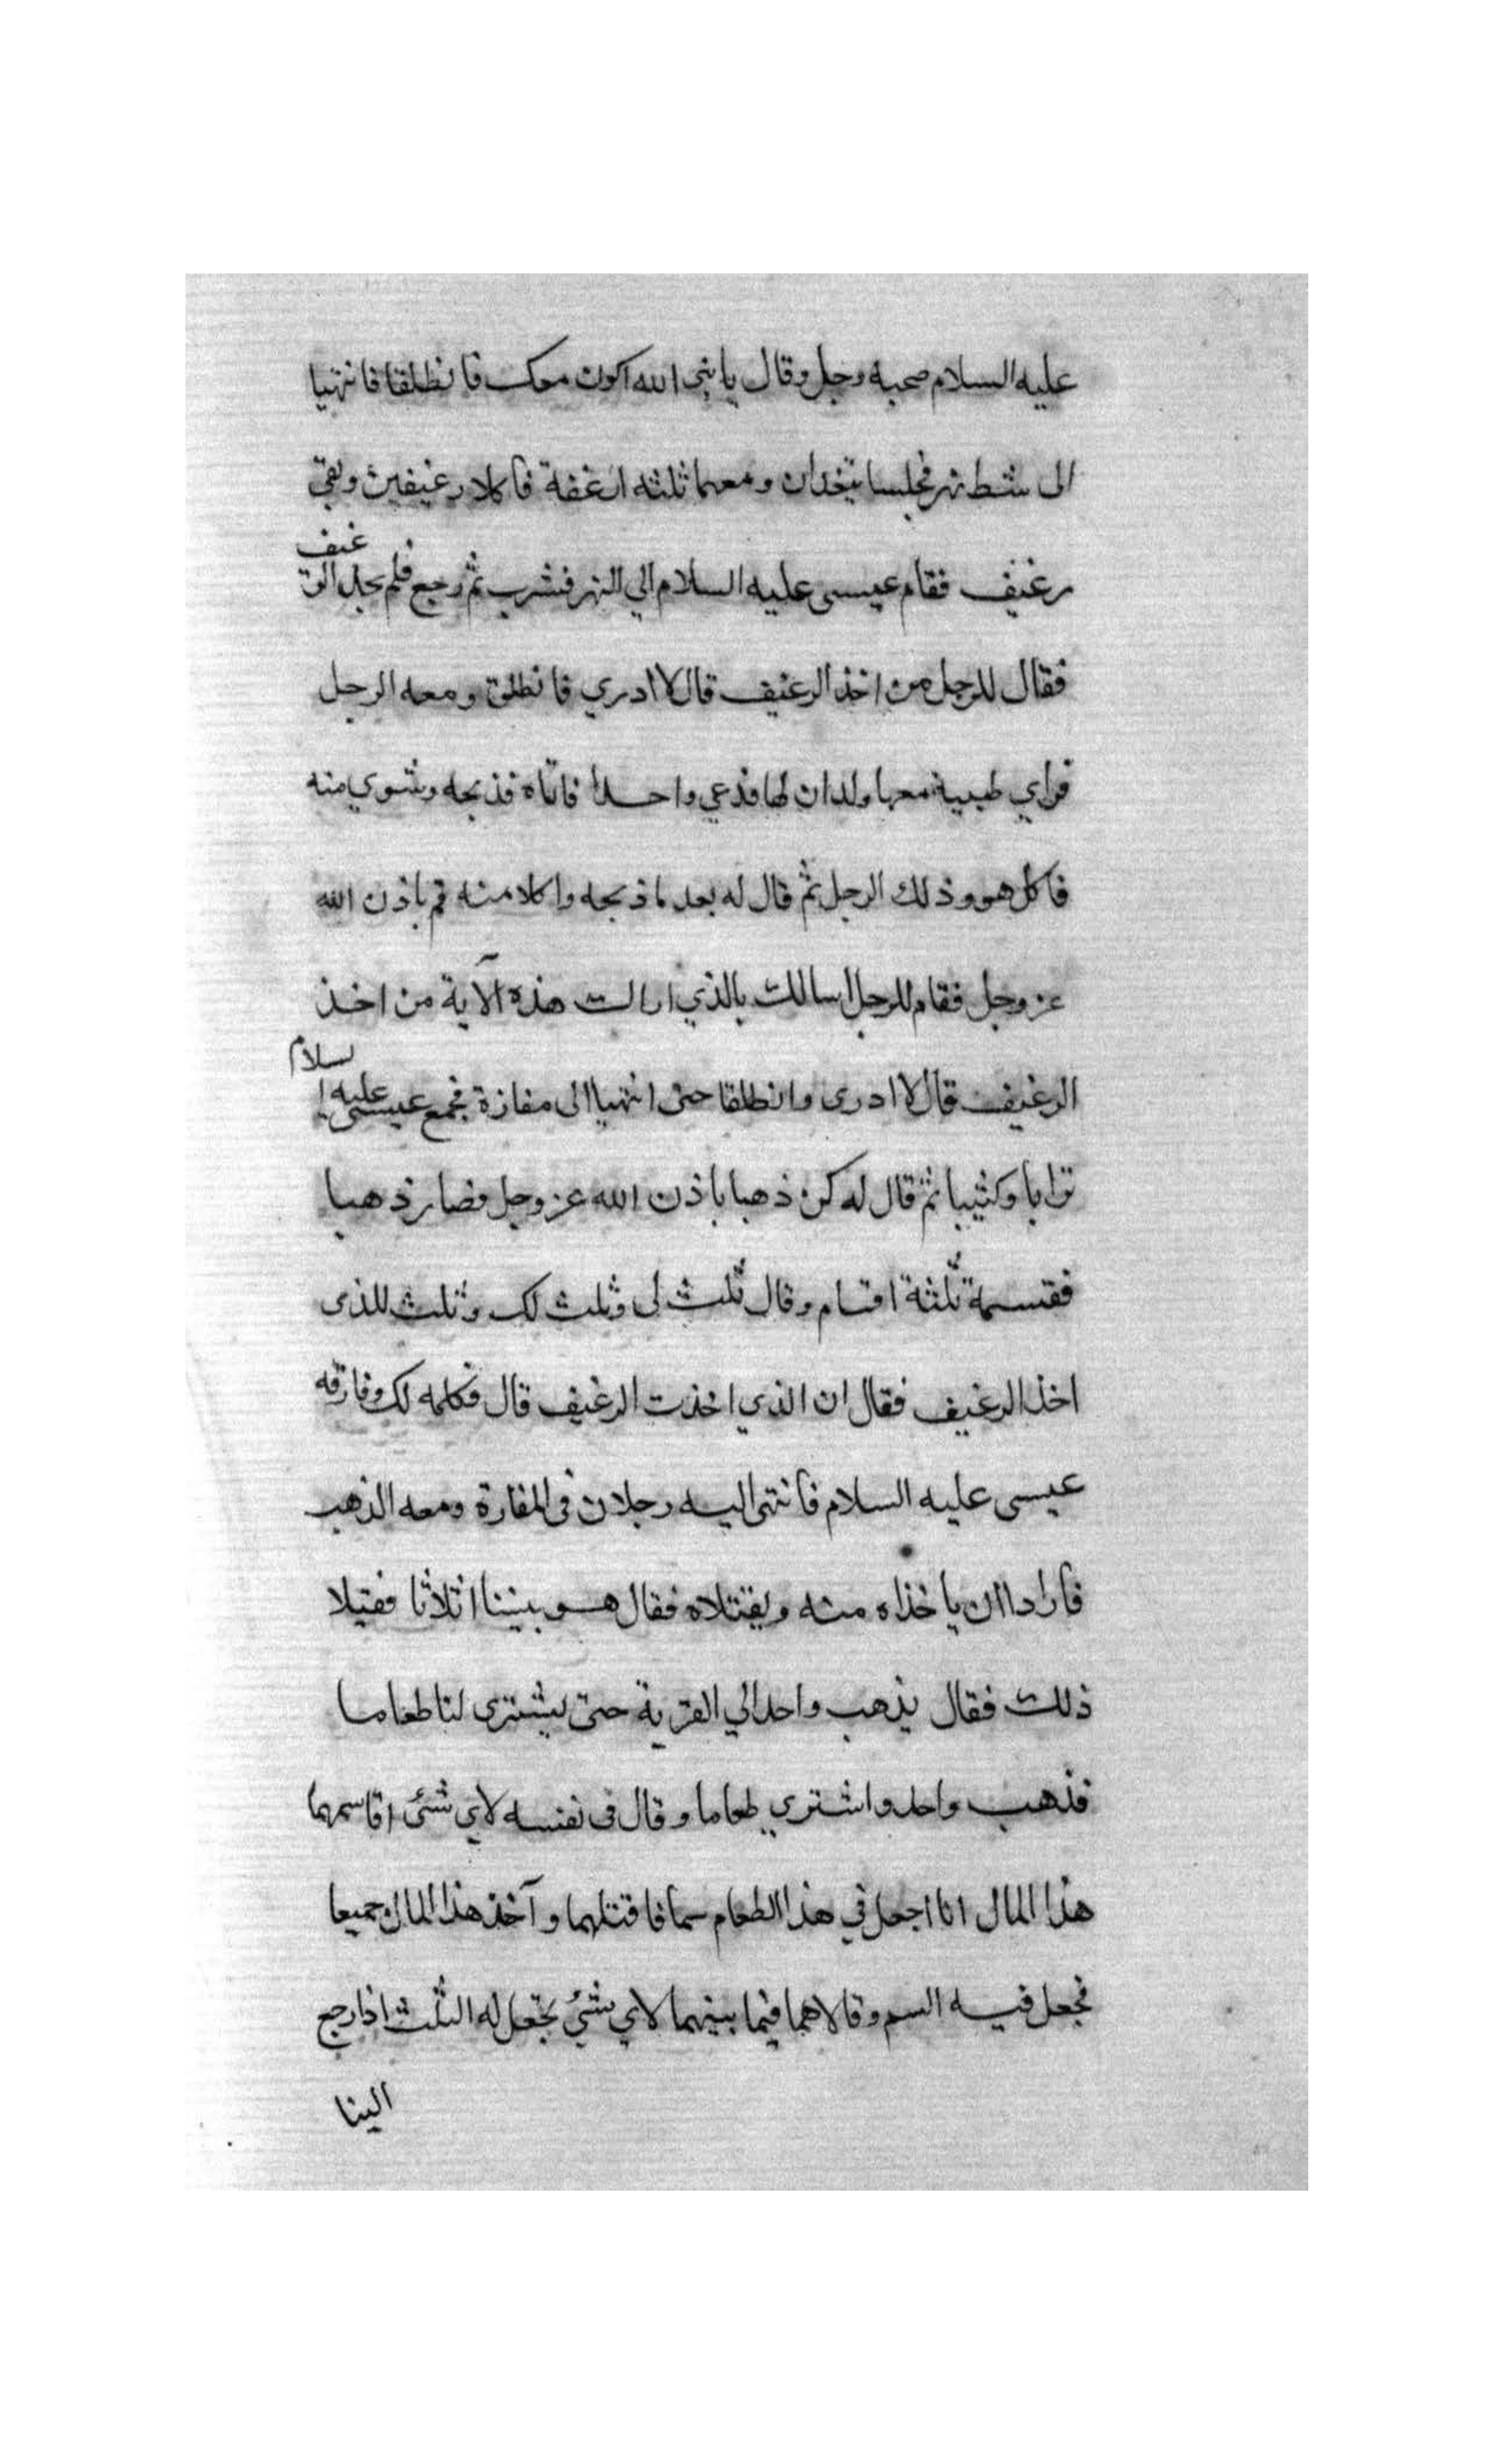 عليه السلام صحبه رجل وقال يا نبى الله اكون معك فانطلقا فانتهيا
الى شط نهر فجلسا يتغدان ومعهما ثلثه ارغفة فأكلا رغيفين وبقى
رغيف فقام عيسى عليه السلام الي النهر فشرب ثم رجع فلم يجد الرغيف
فقال للرجل من اخذ الرغيف قال لا ادري فانطلق ومعه الرجل
فراي ظبية معها ولدان لها فدعي واحدا فاتاه فذبحه وشوي منه
فاكل هو وذلك الرجل ثم قال له بعد ما ذبحه واكلا منه قم باذن الله
عز وجل فقام للرجل اسالك بالذي اراك هذه الآية من اخذ
الرغيف قال لا ادرى وانطلقا حتى انتهيا الى مفازة فجمع عيسى عليه السلام
ترابا وكثيبا ثم قال له كن ذهبا باذن الله عز وجل فصار ذهبا
فقسمه ثلثة اقسام وقال ثلث لى وثلث لك وثلث للذى
اخذ الرغيف فقال ان الذي اخذت الرغيف قال فكله لك وفارقه
عيسى عليه السلام فأنتهى اليه رجلان فى المفازة ومعه الذهب
فأرادا ان ياخذاه منه ويقتلاه فقال هو بيننا اثلاثا فقبلا
ذلك فقال يذهب واحد الي القرية حتى يشترى لنا طعاما
فذهب واحد واشتري طعاما وقال فى نفسه لاي شئ اقاسمهما
هذا المال انا اجعل في هذا الطعام سما فاقتلهما وآخذ هذا المال جميعا
فجعل فيه السم وقالا هما فيما بينهما لاي شئ نجعل له الثلث اذا رجع
الينا